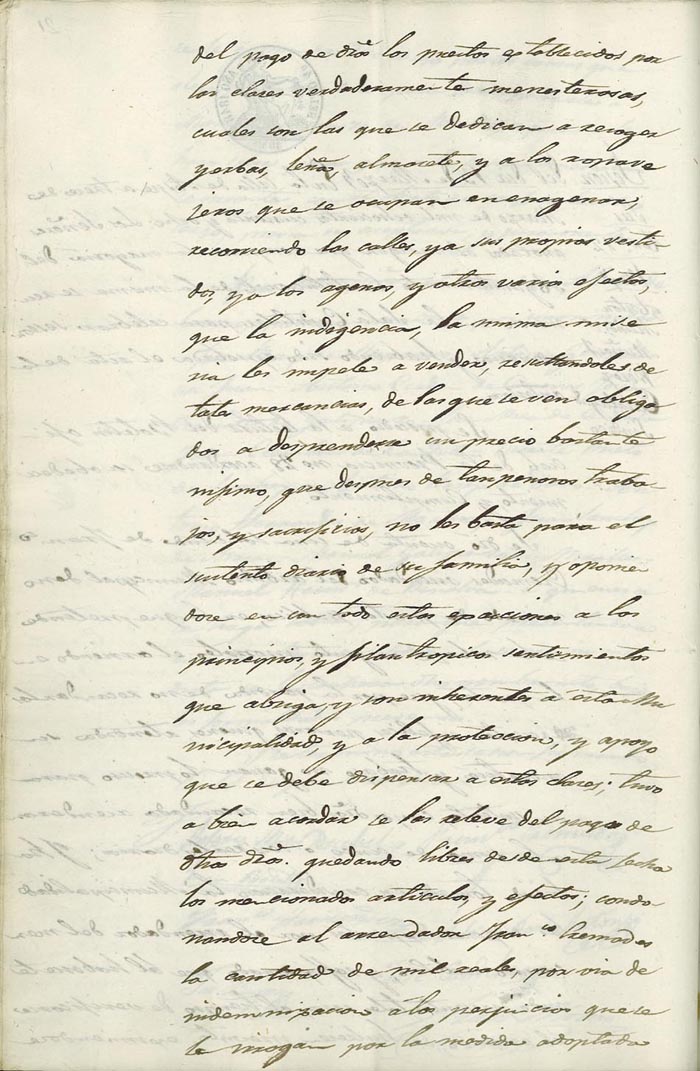 del pago de dros los puestos establecidos por
las clases verdaderamente menesterosas,
cuales son las que se dedican a recoger
yerbas, leña, almorete, y a los ropave
jeros que se ocupan en enagenar,
recorriendo las calles, ya sus propios vesti-
dos, ya los agenos, y otros varios efectos,
que la indigencia, la misma mise
ria les impele a vender, resultandoles de
tales mercancias, de las que se ven obliga
dos a desprenderse un precio bastante
infimo, que despues de tan penosos traba-
jos, y sacrificios, no les basta para el
sustento diario de su familia, y oponien
dose en un todo estas exacciones a los
principios, y filantropicos sentimientos
que abriga, y son inherentes a esta Mu
nicipalidad, y a la proteccion, y apoyo
que se debe dispensar a estas clases; tuvo
a bien acordar se las releve del pago de
dhos dros. quedando libres desde esta fecha
los mencionados articulos, y efectos; condo
nandose al arrendador Franco
la cantidad de mil reales, por via de
indemnizacion a los perjuicios que se
le irrogan por la medida adoptada